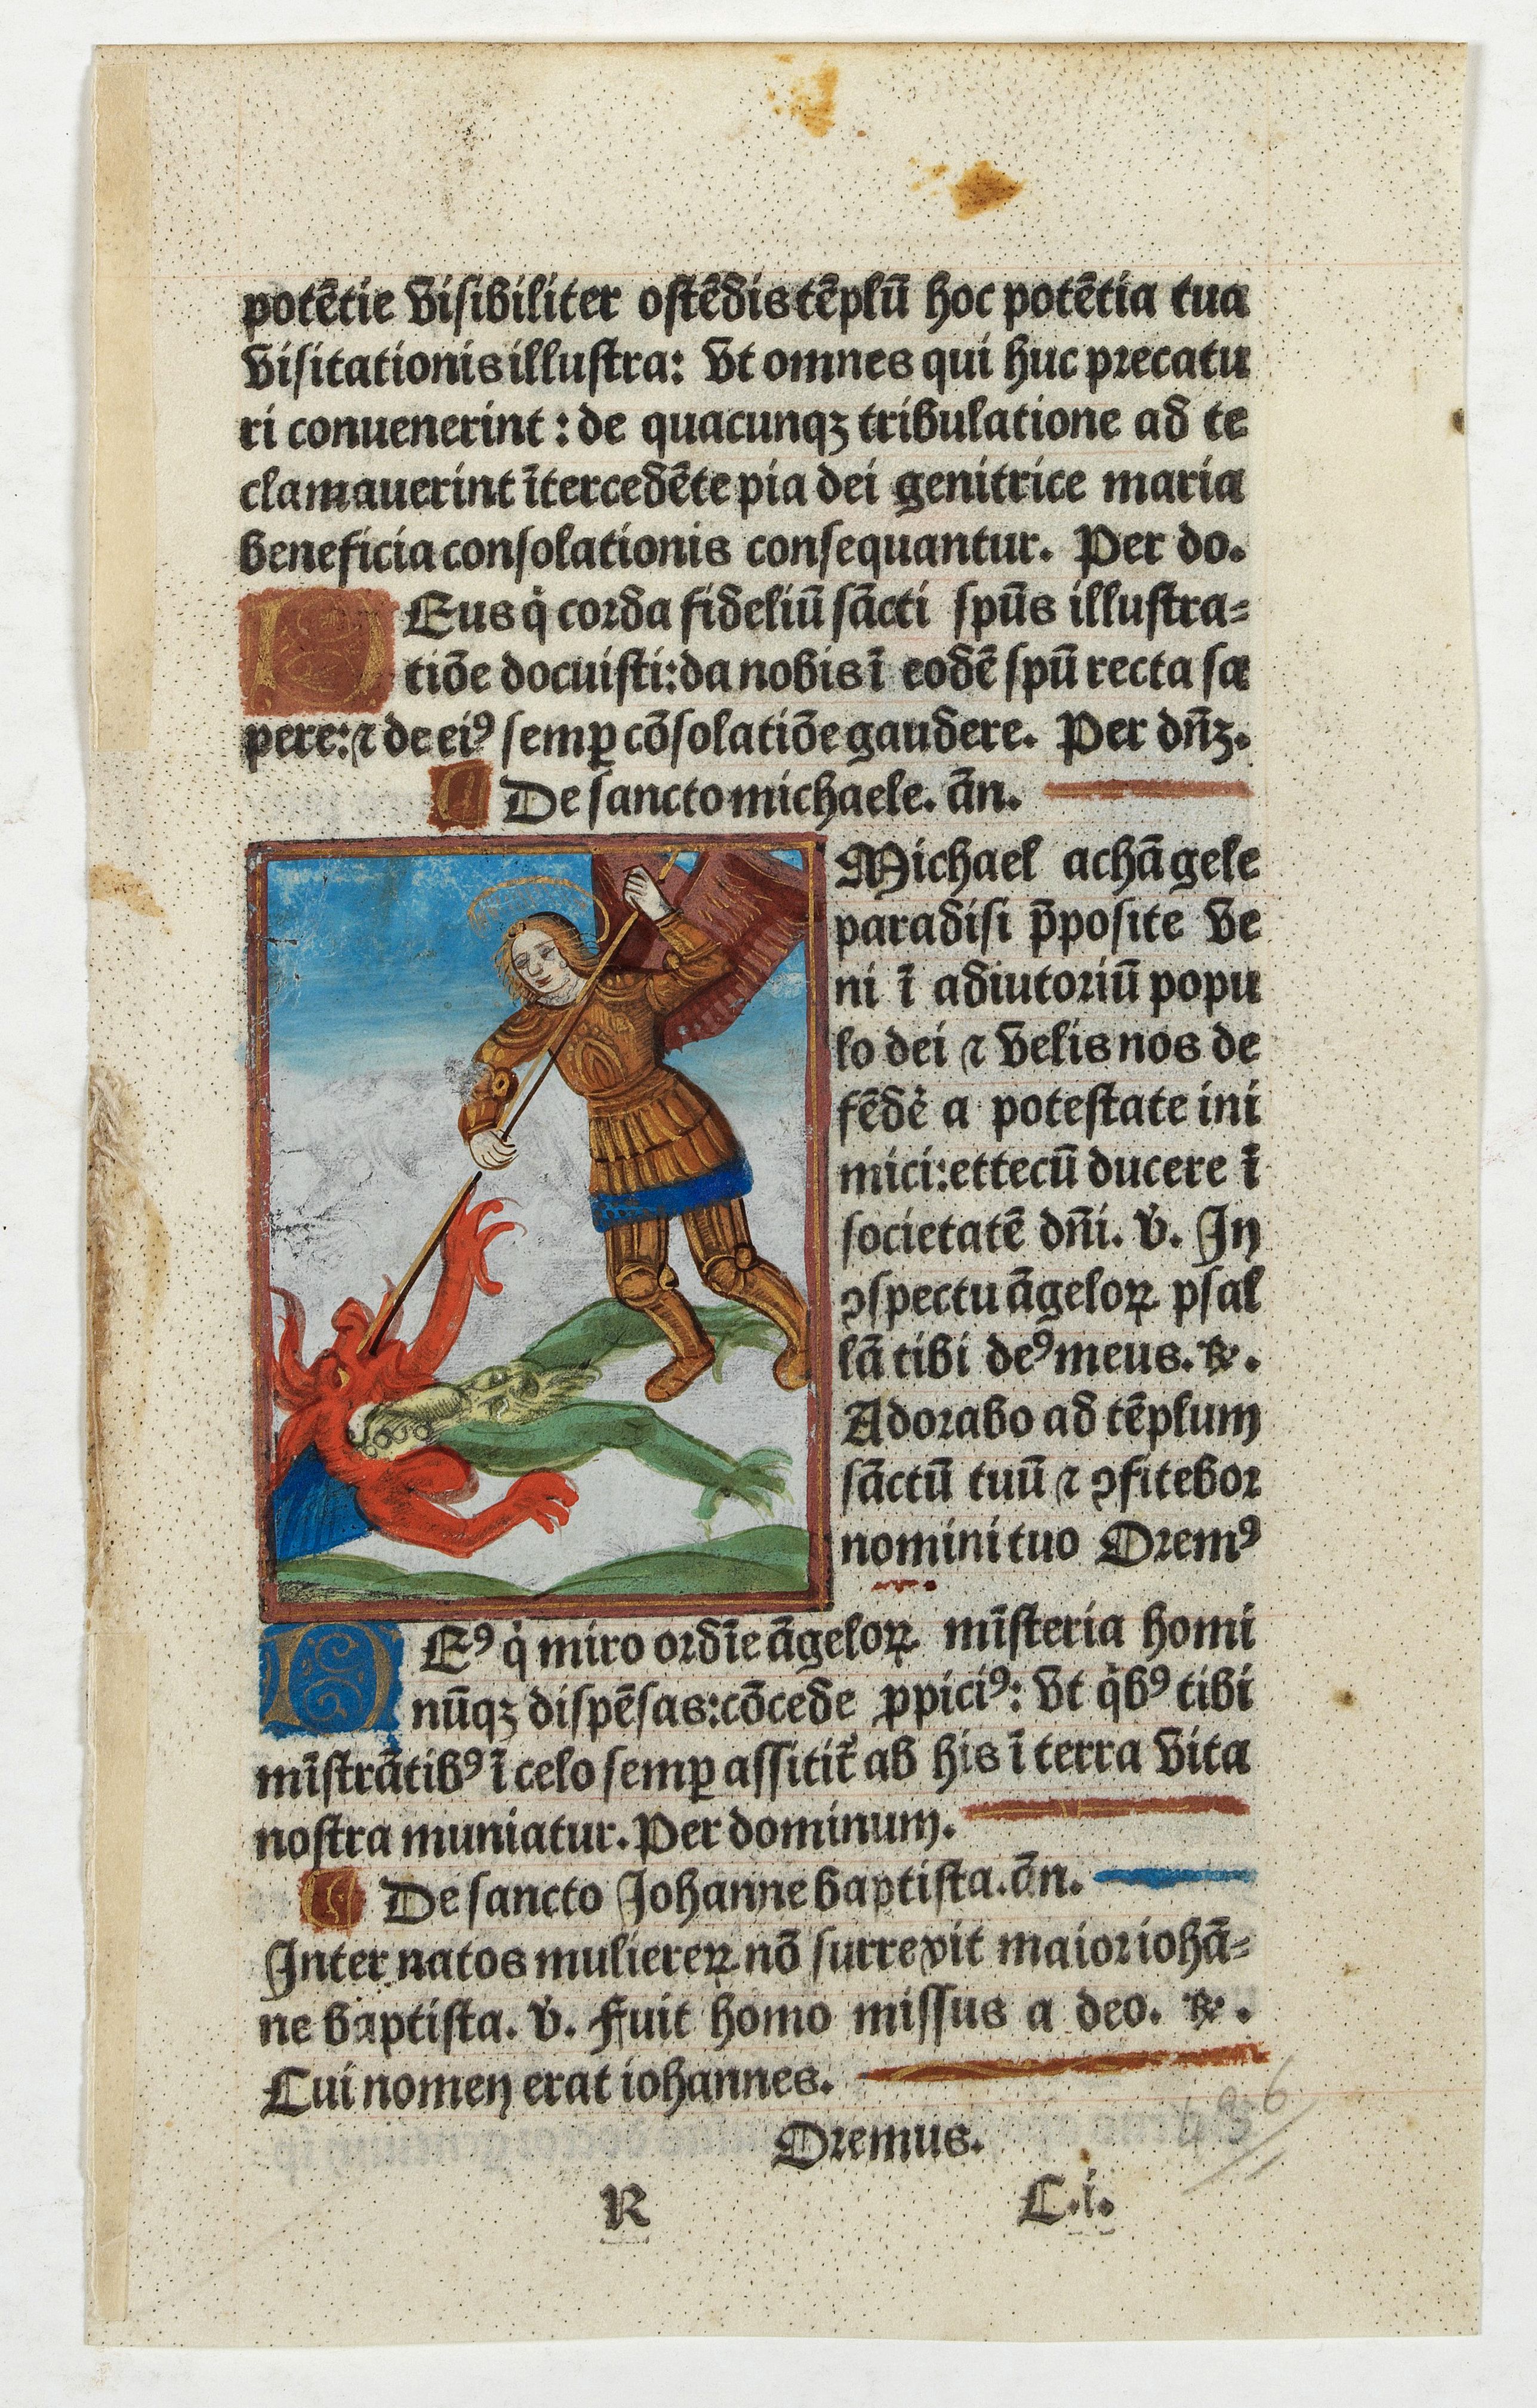 potētie visibiliter ostēdis tēplū hoc potētia tua
visitationis illustra: vt omnes qui huc precatu
ri conuenerint : de quacunqꝫ tribulatione ad te
clamauerint ītercedēte pia dei genitrice maria
beneficia consolationis consequantur. Per do.
DEus q̇ corda fideliū sācti spūs illustra=
tiōe docuisti: da nobis ī eodē spū recta sa
pere: ⁊ de eiꝰ semꝑ cōsolatiōe gaudere. Per dn̄ꝫ.
¶ De sancto michaele. ān.
Michael achāgele
paradisi p̄posite ve
ni ī adiutoriū popu
lo dei ⁊ velis nos de
fēdē a potestate ini
mici: et tecū ducere ī
societatē dn̄i. v̇. In
ꝯspectu āgeloꝝ psal
lā tibi deꝰ meus. ℟.
Adorabo ad tēplum
sāctū tuū ⁊ ꝯfitebor
nomini tuo Oremꝰ
DEꝰ q̇ miro ordīe āgeloꝝ mīsteria homi
nūqꝫ dispēsas: cōcede ꝓpiciꝰ: vt q̇bꝰ tibi
mīstrātibꝰ ī celo semꝑ assitit̄ ab his ī terra vita
nostra muniatur. Per dominum.
¶ De sancto Johanne baptista. ān.
Inter natos muliereꝝ nō surrexit maior iohā=
ne baptista. v̇. Fuit homo missus a deo. ℟.
Cui nomen erat iohannes.
Oremus.
R C.i.